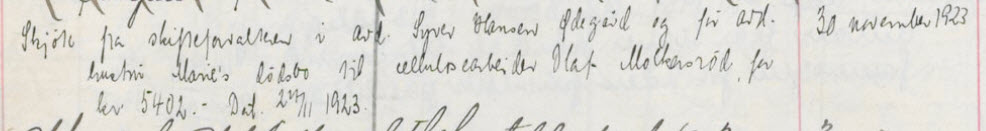 Skjöte fra skifteforvalteren i avd. Syver Hansen Ødegård og för avd. 30 november 1923
hustru Marie's dödsbo til cellulosearbeider Olaf Mokkersröd, for
kr 5402.- Dat. 27/11 1923.